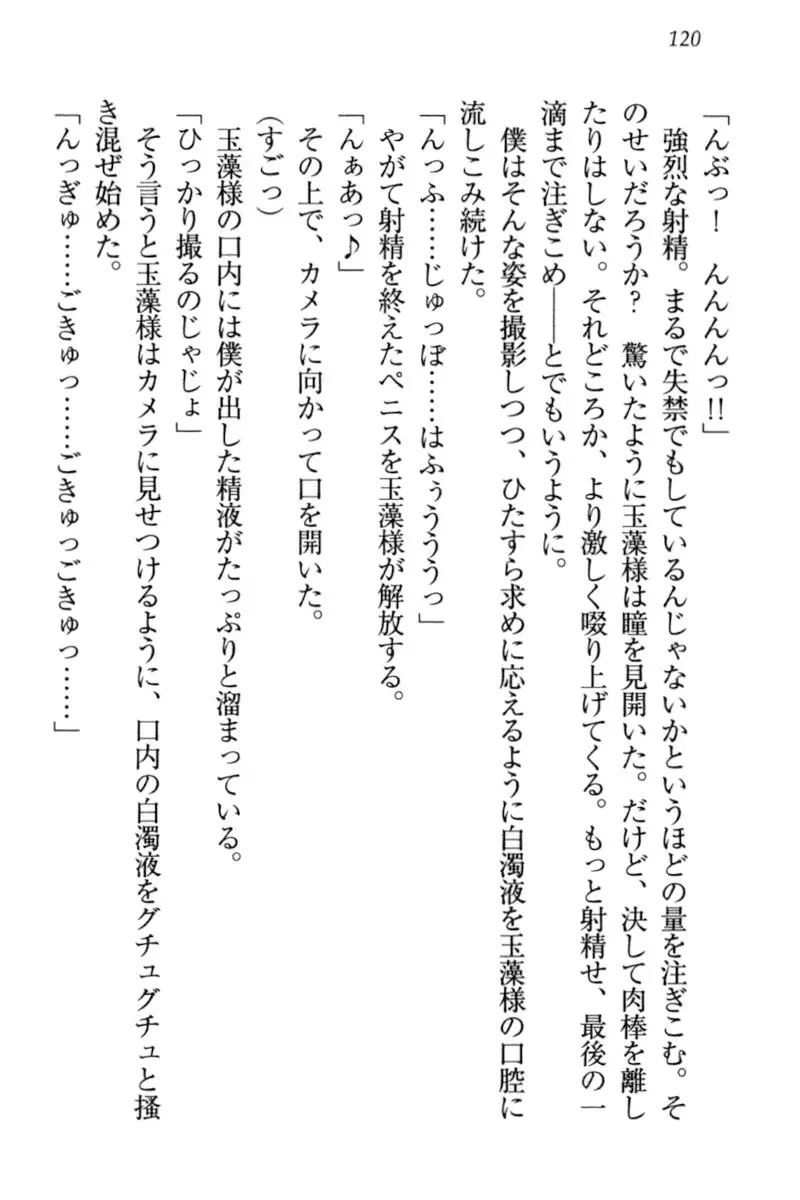 120
「んぶっ！　んんんんっ!!」
　強烈な射精。まるで失禁でもしているんじゃないかというほどの量を注ぎこむ。そ
のせいだろうか？　驚いたように玉藻様は瞳を見開いた。だけど、決して肉棒を離し
たりはしない。それどころか、より激しく啜り上げてくる。もっと射精せ、最後の一
滴まで注ぎこめ――とでもいうように。
　僕はそんな姿を撮影しつつ、ひたすら求めに応えるように白濁液を玉藻様の口腔に
流しこみ続けた。
「んっふ……じゅっぽ……はふぅううぅっ」
　やがて射精を終えたペニスを玉藻様が解放する。
「んぁあっ♪」
　その上で、カメラに向かって口を開いた。
（すごっ）
　玉藻様の口内には僕が出した精液がたっぷりと溜まっている。
「ひっかり撮るのじゃじょ」
　そう言うと玉藻様はカメラに見せつけるように、口内の白濁液をグチュグチュと掻
き混ぜ始めた。
「んっぎゅ……ごきゅっ……ごきゅっごきゅっ……」